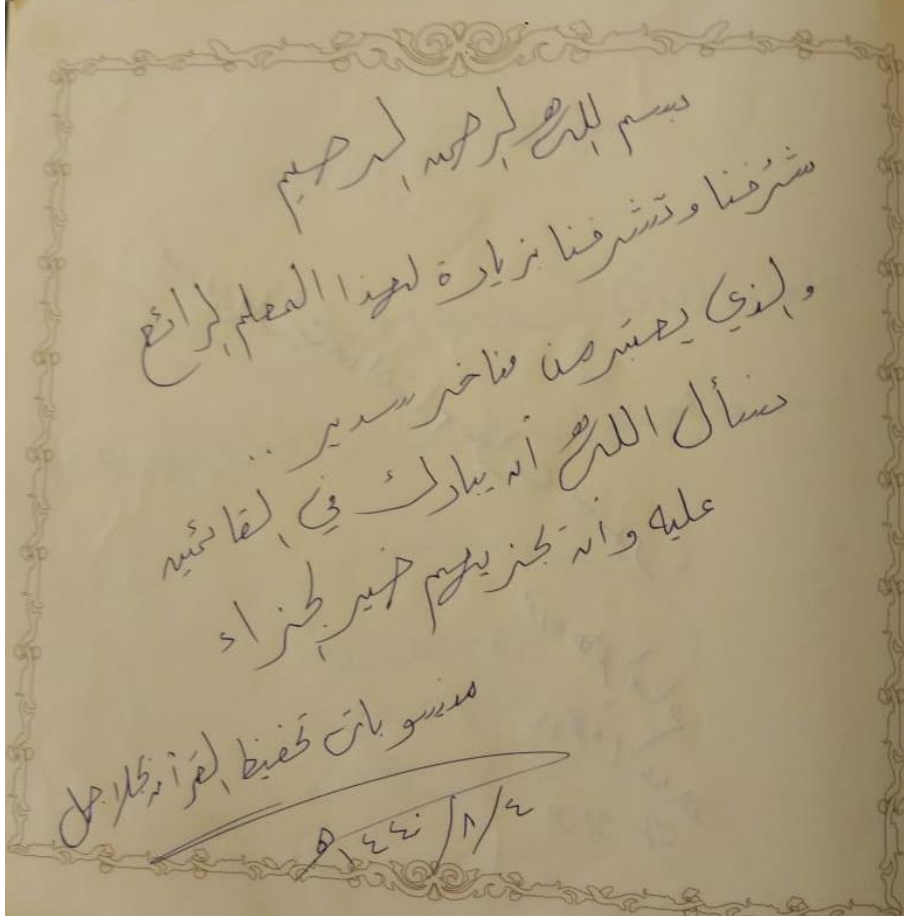 بسم الله الرحمن الرحيم
شرُفنا وتشرفنا بزيارة لهذا المعلم الرائع
والذي يعتبر من مفاخر سدير ..
نسأل الله أن يبارك في القائمين
عليه وان يجزيهم خير الجزاء
منسوبات تحفيظ القرآن بجلاجل
٤/٨/١٤٤٠هـ